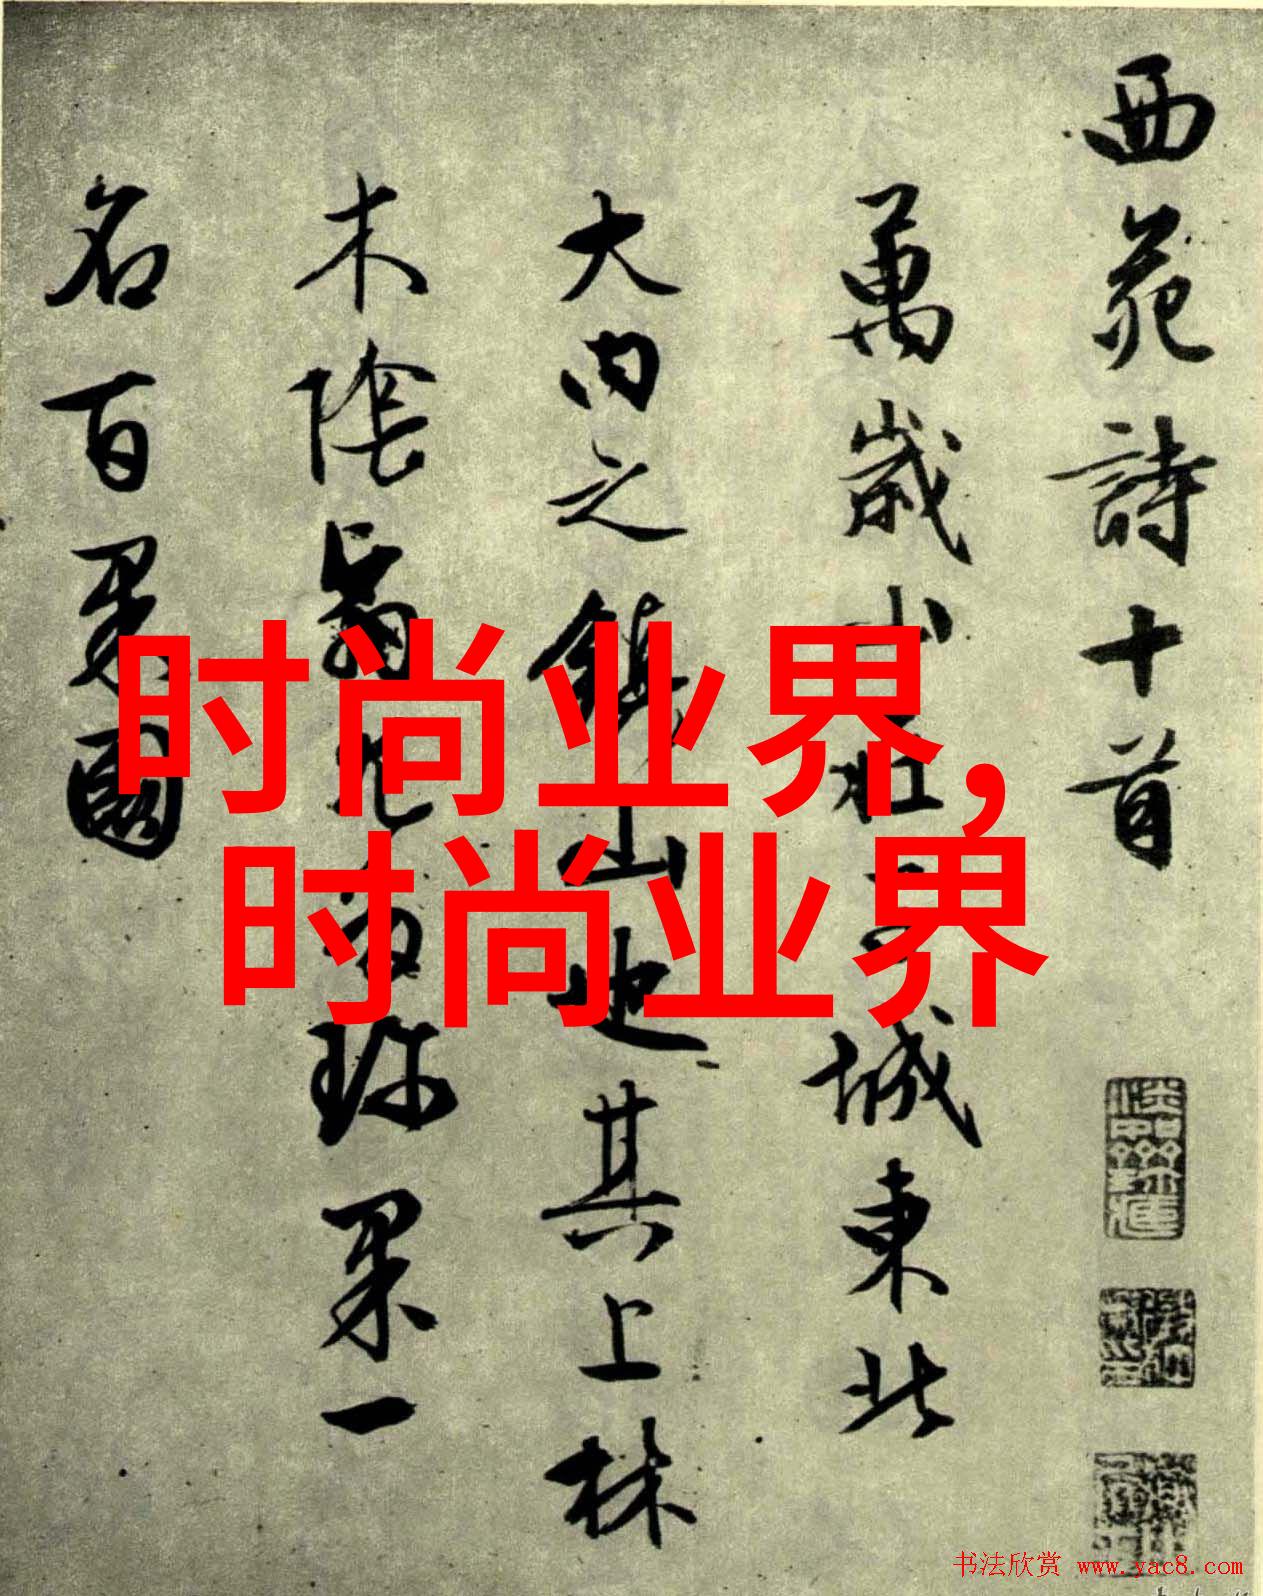 西苑詩十首
萬歲山在子城東北
大内之鎮山也其上林
木陰翳尤多珍果一
名百果園
时尚业界，
时尚业界
书法欣赏 www.yac8.com